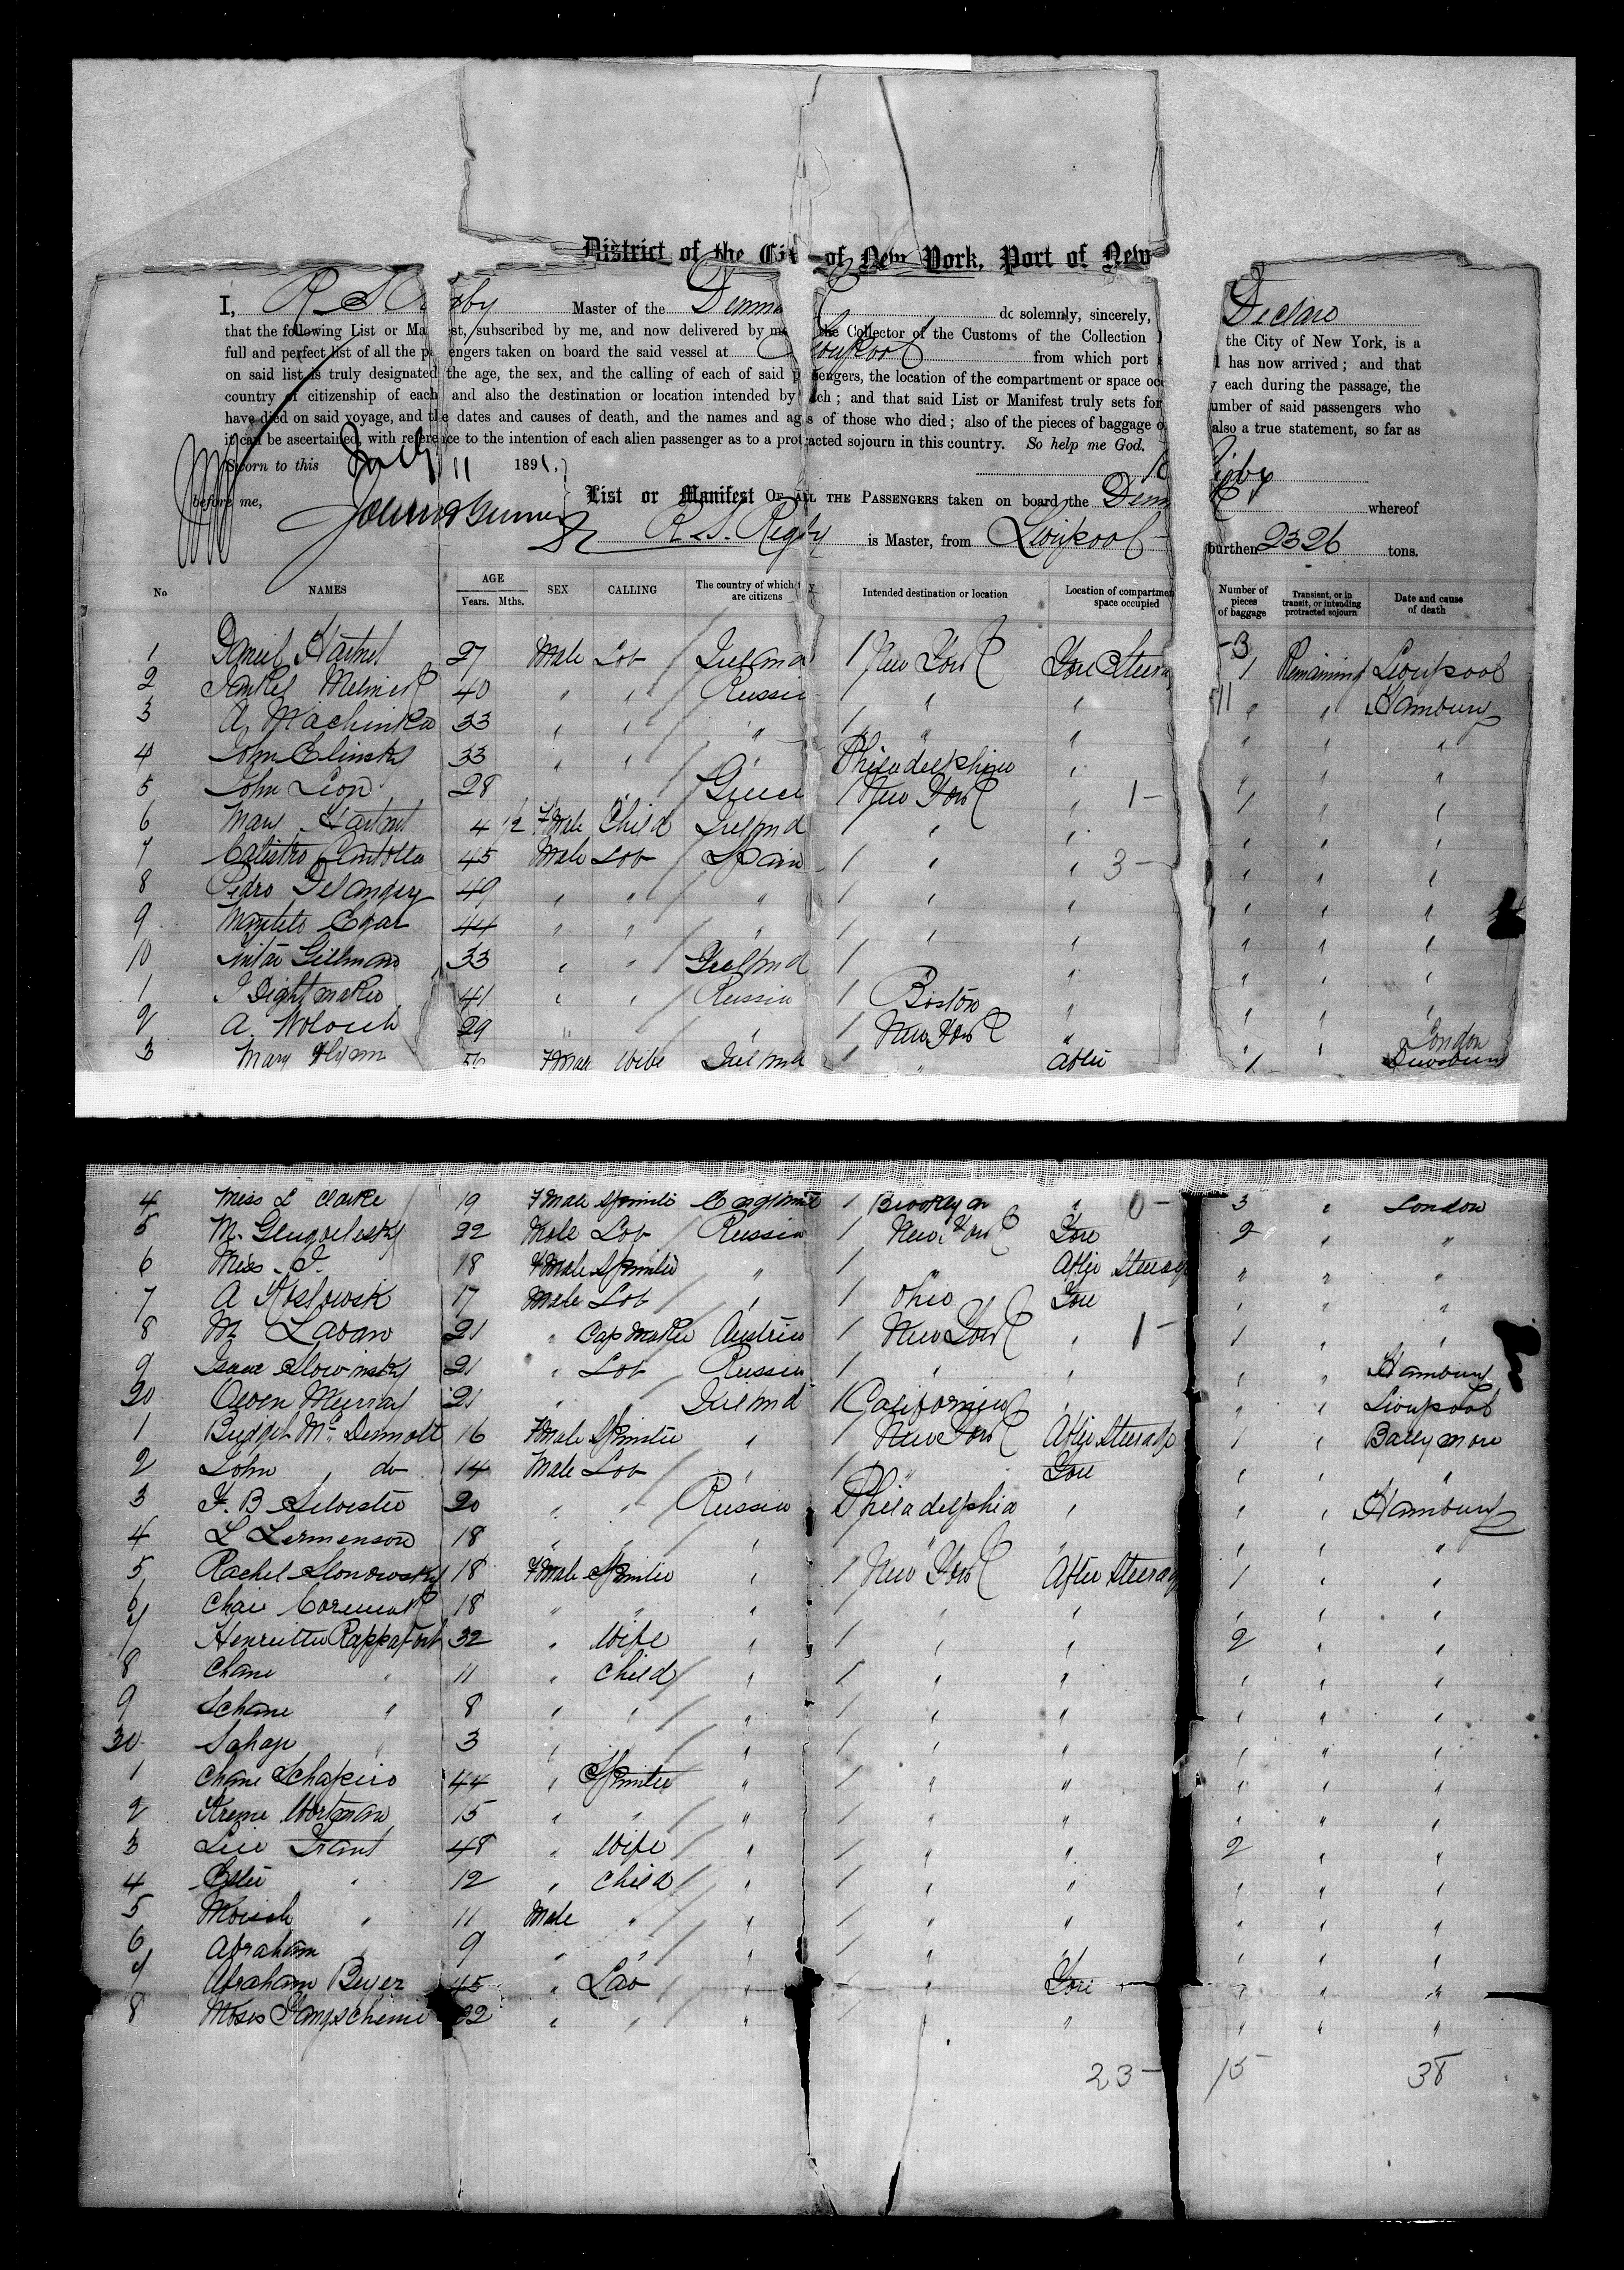 District of the Cit of New York, Port of New
I, R S R gby Master of the Denma do solemnly, sincerely, Declare
that the following List or Ma st, subscribed by me, and now delivered by me the Collector of the Customs of the Collection the City of New York, is a
full and perfect list of all the p engers taken on board the said vessel at Liverpool from which port has now arrived; and that
on said list is truly designated the age, the sex, and the calling of each of said p sengers, the location of the compartment or space oc each during the passage, the
country of citizenship of each and also the destination or location intended by ch; and that said List or Manifest truly sets for umber of said passengers who
have died on said voyage, and the dates and causes of death, and the names and ag s of those who died; also of the pieces of baggage o also a true statement, so far as
it can be ascertained, with reference to the intention of each alien passenger as to a protracted sojourn in this country. So help me God.
Sworn to this July 11 1891,
before me, List or Manifest OF ALL THE PASSENGERS taken on board the Denm whereof
R. S. Rigby is Master, from Liverpool burthen 2326 tons.
No NAMES AGE Years. Mths. SEX CALLING The country of which they are citizens Intended destination or location Location of compartmen space occupied Number of pieces of baggage Transient, or in transit, or intending protracted sojourn Date and cause of death
1 Daniel Hartnet 27 Male Lab / Ireland 1 New York Fore Steera 3 1 Remaining Liverpool
2 Melnick 40 " " / Russia 1 " " 11 " " Hamburg
3 A. Machinka 33 " " / " 1 " " " " "
4 John Elinsky 33 " " / " Philadelphia " " " "
5 John Leon 28 " " / Greece 1 New York " 1 - 1 " "
6 Mary Hartnet 4 1/2 Fmale Child / Ireland 1 " " " " "
7 Calistro 45 Male Lab / Spain 1 " " 3 - " " "
8 Pedro 49 " " / " 1 " " " " "
9 44 " " / " 1 " " " " "
10 Gillmans 33 " " / Ireland 1 " " " "
1 41 " " / Russia 1 Boston " " " "
2 A. Woloch 29 " " / " 1 New York " " " London
3 Mary Flynn Fmale Wife Ireland 1 " After 1
4 Miss L Clarke 19 Fmale Spinster England 1 Brooklyn " 0 - 3 " London
5 M. 22 Male Lab / Russia 1 New York Fore 2 " "
6 Miss - I. 18 Fmale Spinster " 1 " After Steerage " " "
7 A Koslowsk 17 Male Lab / " 1 Ohio Fore " " "
8 M Lavan 21 " Cap Maker Austria 1 New York " 1 - 1 " "
9 Isaac Slowinsky 21 " Lab Russia 1 " " " " Hamburg
20 Owen Murray 21 " " Ireland 1 California " " " Liverpool
1 Bridget McDermott 16 Fmale Spinster " 1 New York After Steerage 1 " Ballymore
2 John " do 14 Male Lab " 1 " Fore " " "
3 F. B Silvester 20 " " Russia Philadelphia " " " Hamburg
4 L Lermenson 18 " " / " " " " " "
5 Rachel Slonowsky 18 Fmale Spinster " 1 New York After Steerage 1 " "
6 18 " " " 1 " " " " "
7 Henrietta Rappaport 32 " Wife " 1 " " 2 " "
8 Chane " 11 " Child / " 1 " " " " "
9 Schane " 8 " " / " 1 " " " " "
30 " 3 " " / " 1 " " " " "
1 Chane Schapiro 44 " Spinster " 1 " " " " "
2 Wortman 15 " " / " 1 " " " " "
3 48 " Wife / " 1 " " 2 " "
4 " 12 " Child / " 1 " " " " "
5 Moisch " 11 Male " / " 1 " " " " "
6 Abraham 9 " " / " 1 " " " " "
7 Abraham Beyer 45 " Lab / " 1 " Fore " " "
8 Moses 22 " " / " 1 " " " " "
23 - 15 38